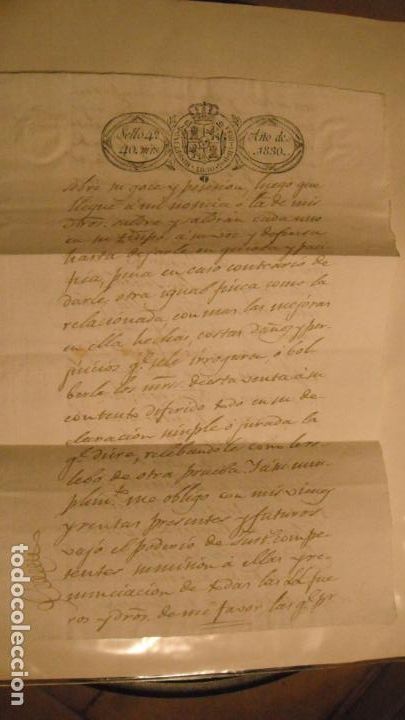 Sello 4º
40. mrs
Año de
1830.
sobre su goce y posesion, luego que
llegue à mi noticia ó la de mis
saldre y saldràn cada uno
en su tiempo a su voz y defensa
hasta dejarle en quieta y paci
fica, pena en caso contrario de
darle otra igual finca como la
relacionada, con mas las mejoras
en ella hechas, costas daños y per
juicios q.e se le irrogaren ó bol
berle los mrs. de esta venta à su
contento diferido todo en su de
claracion simple ó jurada la
q.e diere, relebandole como les
relebo de otra prueba. Y à su cum
plim.to me obligo con mis vienes
y rentas presentes y futuros
vajo el poderio de Just.s compe
tentes sumision à ellas y re
nunciacion de todas las LL. fue
ros y dros. de mi favor las q.e pr.
todocoleccion.net